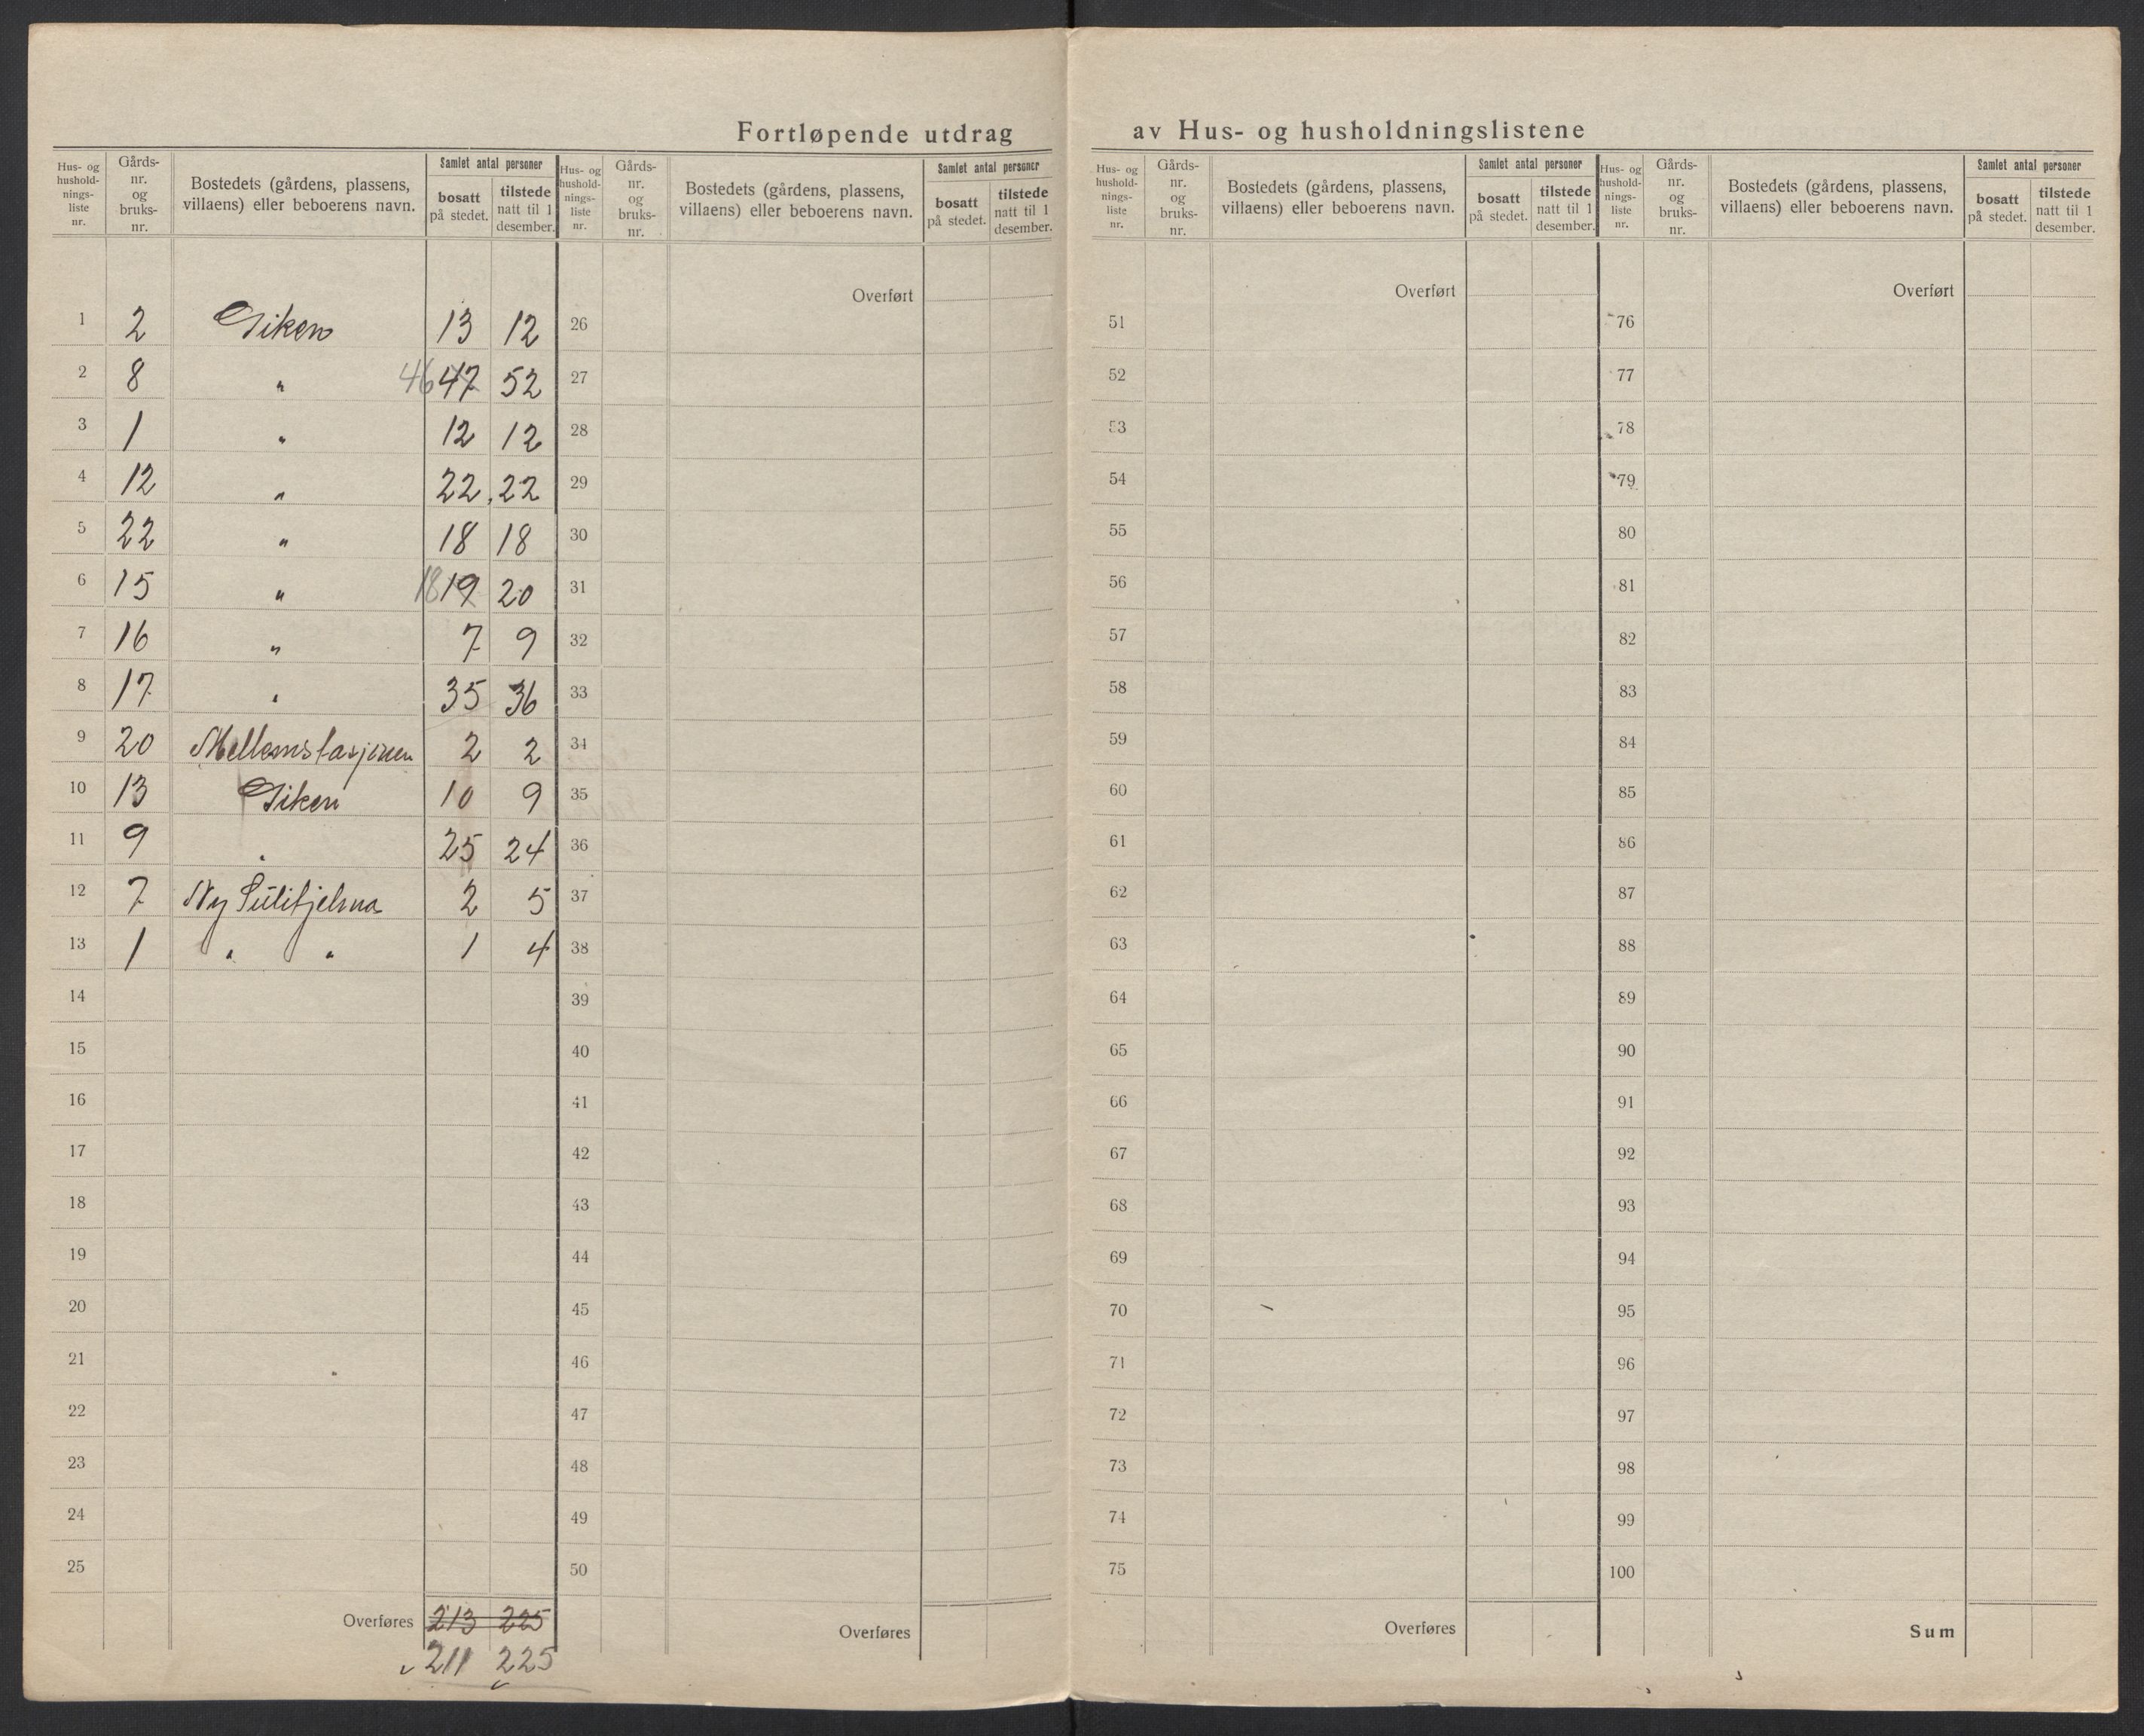 Fortløpende utdrag av Hus- og husholdningslistene
Hus- og hushold-nings-liste nr. | Gårds-nr. og bruks-nr. | Bostedets (gårdens, plassens, villaens) eller beboerens navn. | Samlet antal personer | bosatt på stedet. | tilstede natt til 1 desember.
Hus- og hushold-nings-liste nr. | Gårds-nr. og bruks-nr. | Bostedets (gårdens, plassens, villaens) eller beboerens navn. | Samlet antal personer | bosatt på stedet. | tilstede natt til 1 desember.
Hus- og hushold-nings-liste nr. | Gårds-nr. og bruks-nr. | Bostedets (gårdens, plassens, villaens) eller beboerens navn. | Samlet antal personer | bosatt på stedet. | tilstede natt til 1 desember.
Hus- og hushold-nings-liste nr. | Gårds-nr. og bruks-nr. | Bostedets (gårdens, plassens, villaens) eller beboerens navn. | Samlet antal personer | bosatt på stedet. | tilstede natt til 1 desember.
Overført Overført Overført
1 2 Giken 13 12 26 51 76
2 8 " 46 47 52 27 52 77
3 1 " 12 12 28 53 78
4 12 " 22 22 29 54 79
5 22 " 18 18 30 55 80
6 15 " 18 19 20 31 56 81
7 16 " 7 9 32 57 82
8 17 " 35 36 33 58 83
9 20 Mellemstasjonen 2 2 34 59 84
10 13 Giken 10 9 35 60 85
11 9 " 25 24 36 61 86
12 7 Ny Sulitjelma 2 5 37 62 87
13 1 " " 1 4 38 63 88
14 39 64 89
15 40 65 90
16 41 66 91
17 42 67 92
18 43 68 93
19 44 69 94
20 45 70 95
21 46 71 96
22 47 72 97
23 48 73 98
24 49 74 99
25 50 75 100
Overføres 213 225 Overføres Overføres Sum
211 225